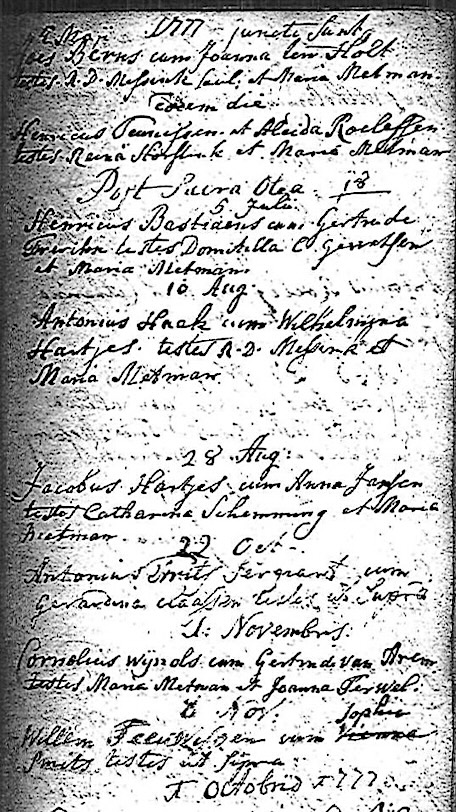 1777 juncti sunt
Joes Berns cum Joanna ten Holt
testes R. D. Messink et Maria Metman.
Eodem die
Henricus Teunissen et Aleida Roelessen
testes et Maria Metman
Post Sacra Olea 18
5 Julii
Henricus Bastiaens cum Gertrude
testes Domitilla C Gerretsen
et Maria Metman.
10 Aug.
Antonius Haak cum Wilhelmina
Hartjes. testes R. D. Messink et
Maria Metman
28 Aug:
Jacobus Hartjes cum Anna Jansen
testes Catharina Schemming et Maria
Metman
22 Oct.
Antonius Smits sergeant cum
Gerardina Claassen testes ut Supra
1. Novembris.
Cornelius Wijnols cum Gertrude van Arem
testes Maria Metman et Joanna Terwel.
8 Nov. Sophia
Willem Teeuwissen cum
Smits testes ut supra
Octobris 1777